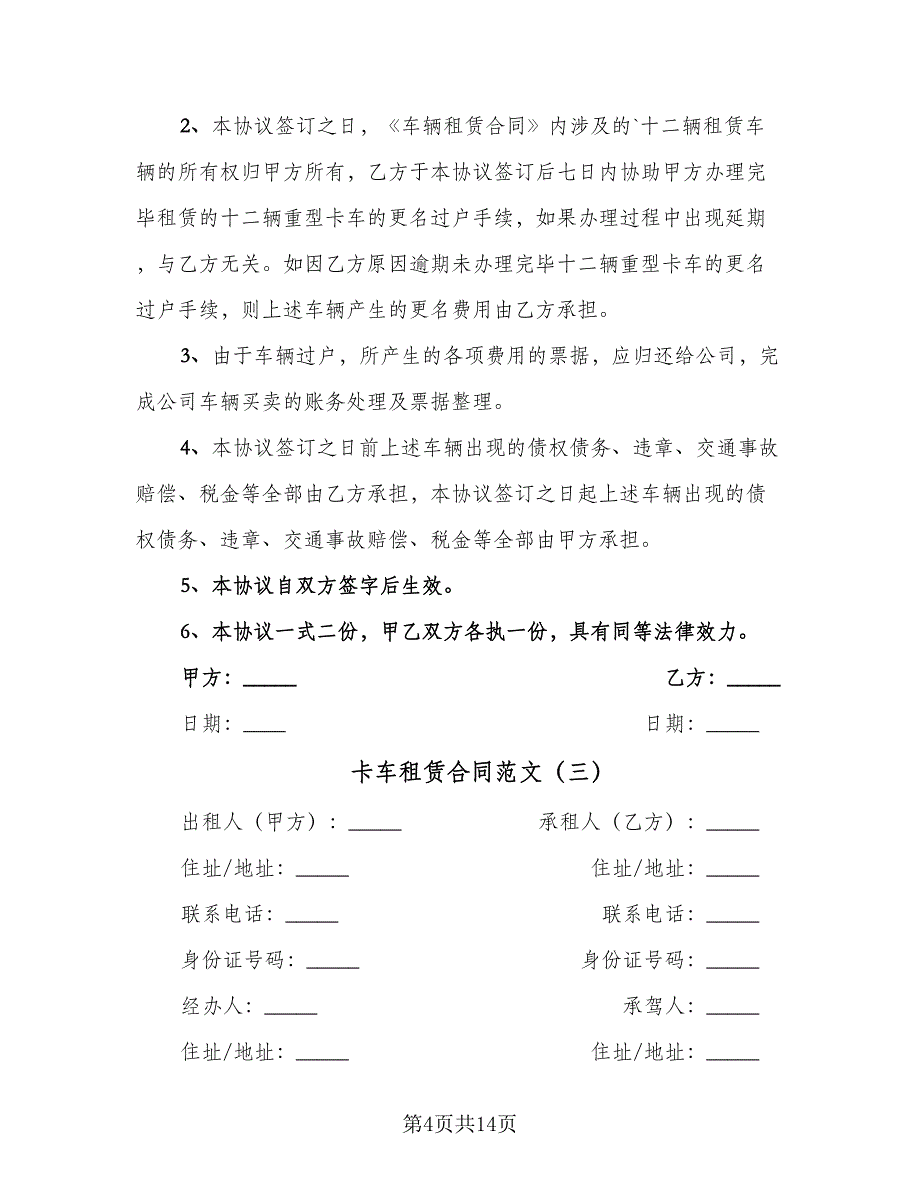 2、本协议签订之日，《车辆租赁合同》内涉及的`十二辆租赁车
辆的所有权归甲方所有，乙方于本协议签订后七日内协助甲方办理完
毕租赁的十二辆重型卡车的更名过户手续，如果办理过程中出现延期
，与乙方无关。如因乙方原因逾期未办理完毕十二辆重型卡车的更名
过户手续，则上述车辆产生的更名费用由乙方承担。
3、由于车辆过户，所产生的各项费用的票据，应归还给公司，完
成公司车辆买卖的账务处理及票据整理。
4、本协议签订之日前上述车辆出现的债权债务、违章、交通事故
赔偿、税金等全部由乙方承担，本协议签订之日起上述车辆出现的债
权债务、违章、交通事故赔偿、税金等全部由甲方承担。
5、本协议自双方签字后生效。
6、本协议一式二份，甲乙双方各执一份，具有同等法律效力。
甲方：_____ 乙方：_____
日期：____ 日期：_____
卡车租赁合同范文（三）
出租人（甲方）：_____ 承租人（乙方）：_____
住址/地址：_____ 住址/地址：_____
联系电话：_____ 联系电话：_____
身份证号码：_____ 身份证号码：_____
经办人：_____ 承驾人：_____
住址/地址：_____ 住址/地址：_____
第4页共14页